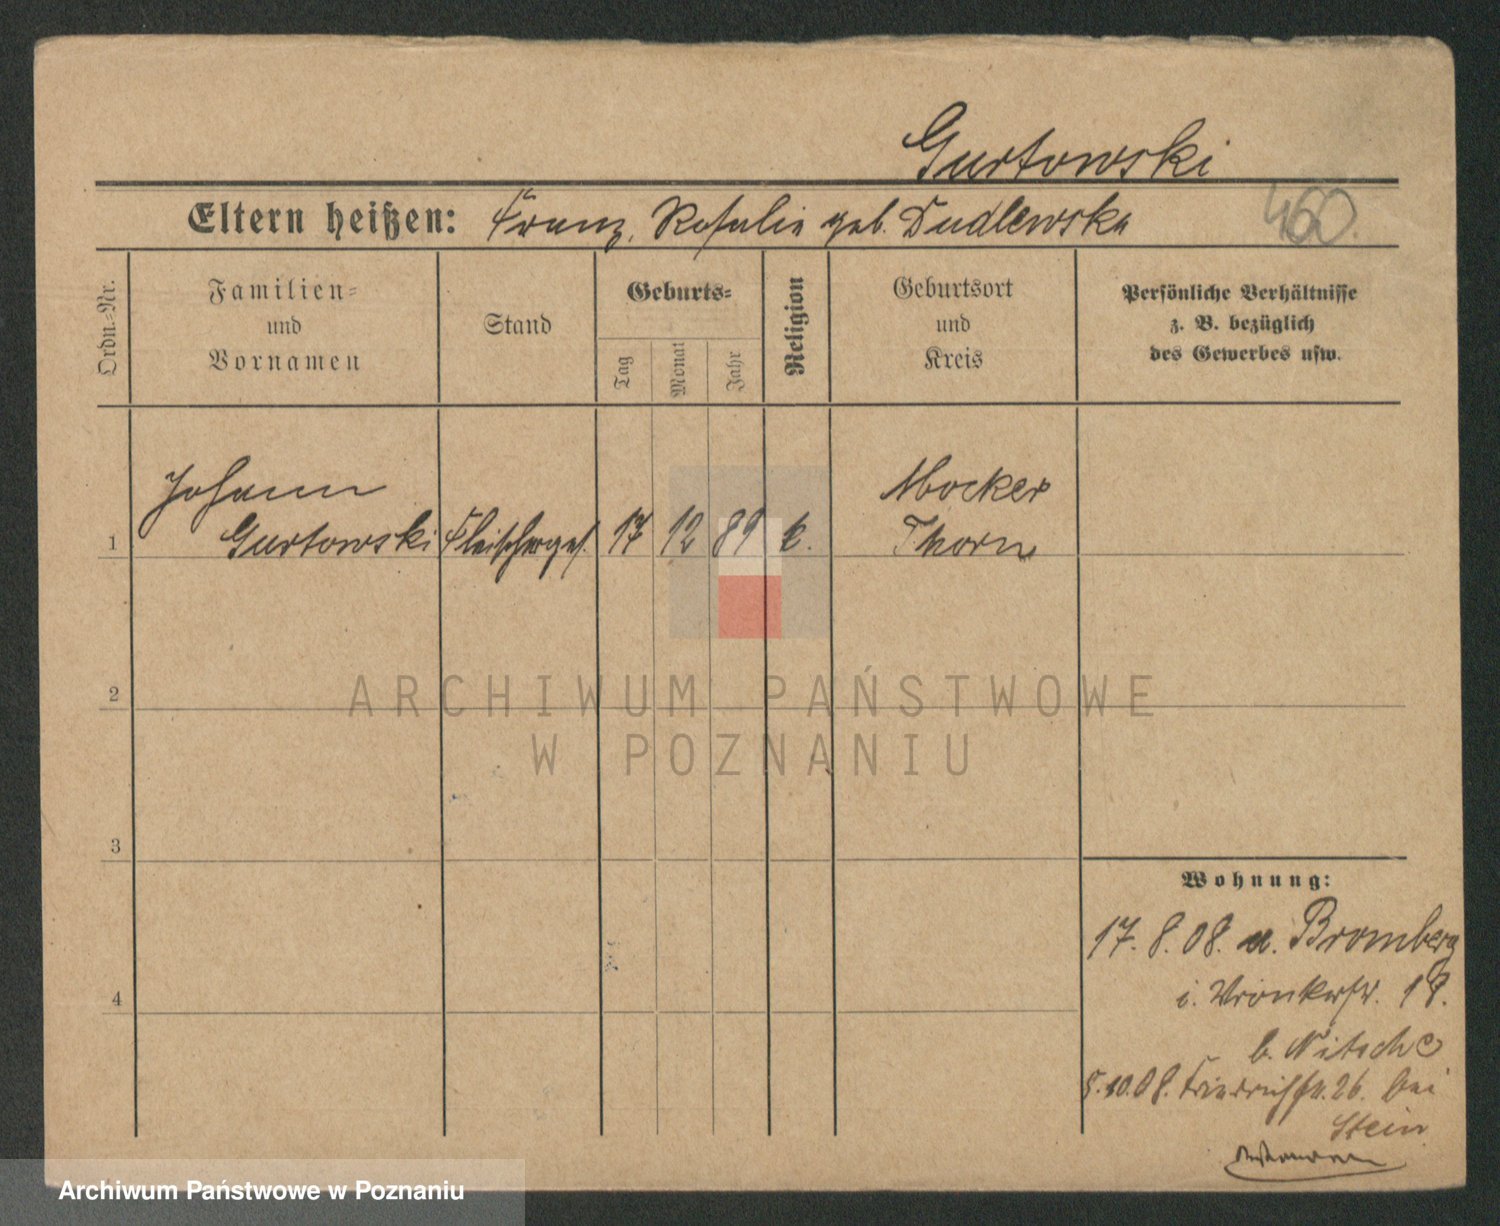 Gurtowski
Eltern heißen: Franz, Rosalie geb. Dudlewska
460.
Ordn.-Nr.
Familien-
und
Vornamen
Stand
Geburts-
Tag
Monat
Jahr
Religion
Geburtsort
und
Kreis
Persönliche Verhältnisse
z. B. bezüglich
des Gewerbes usw.
Johann
1 Gurtowski Fleischerges. 17 12 89 k.
Mocker
Thorn
2
ARCHIWUM PAŃSTWOWE
W POZNANIU
3
4
Wohnung:
17. 8. 08. a. Bromberg
i. Wronkerstr. 18.
b. Nitsche
5.10.08. Friedrichstr. 26. bei
Stein
Archiwum Państwowe w Poznaniu